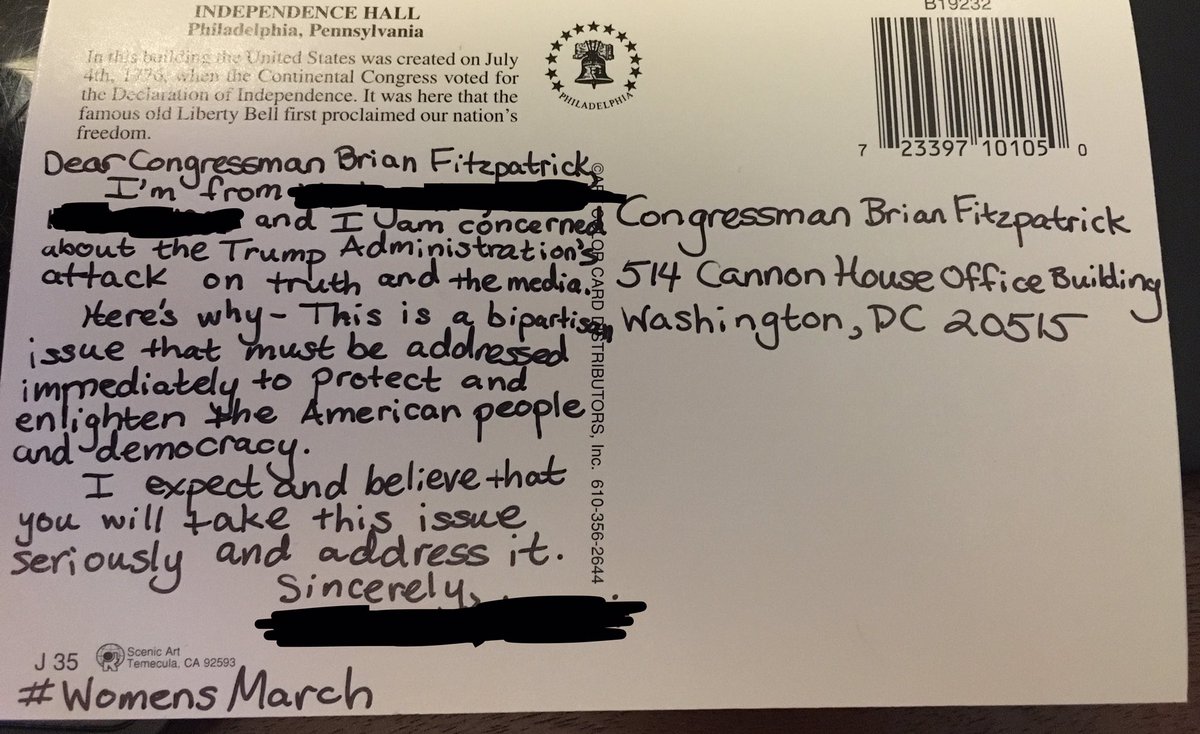 INDEPENDENCE HALL
Philadelphia, Pennsylvania
In this building the United States was created on July
4th, 1776, when the Continental Congress voted for
the Declaration of Independence. It was here that the
famous old Liberty Bell first proclaimed our nation's
freedom.
PHILADELPHIA
B19232
7 23397 10105 0
Dear Congressman Brian Fitzpatrick,
I'm from
and I am concerned
about the Trump Administration's
attack on truth and the media.
Here's why- This is a bipartisan
issue that must be addressed
immediately to protect and
enlighten the American people
and democracy.
I expect and believe that
you will take this issue
seriously and address it.
Sincerely,
Congressman Brian Fitzpatrick
514 Cannon House Office Building
Washington, DC 20515
CARD DISTRIBUTORS, Inc. 610-356-2644
J 35
Scenic Art
Temecula, CA 92593
#WomensMarch